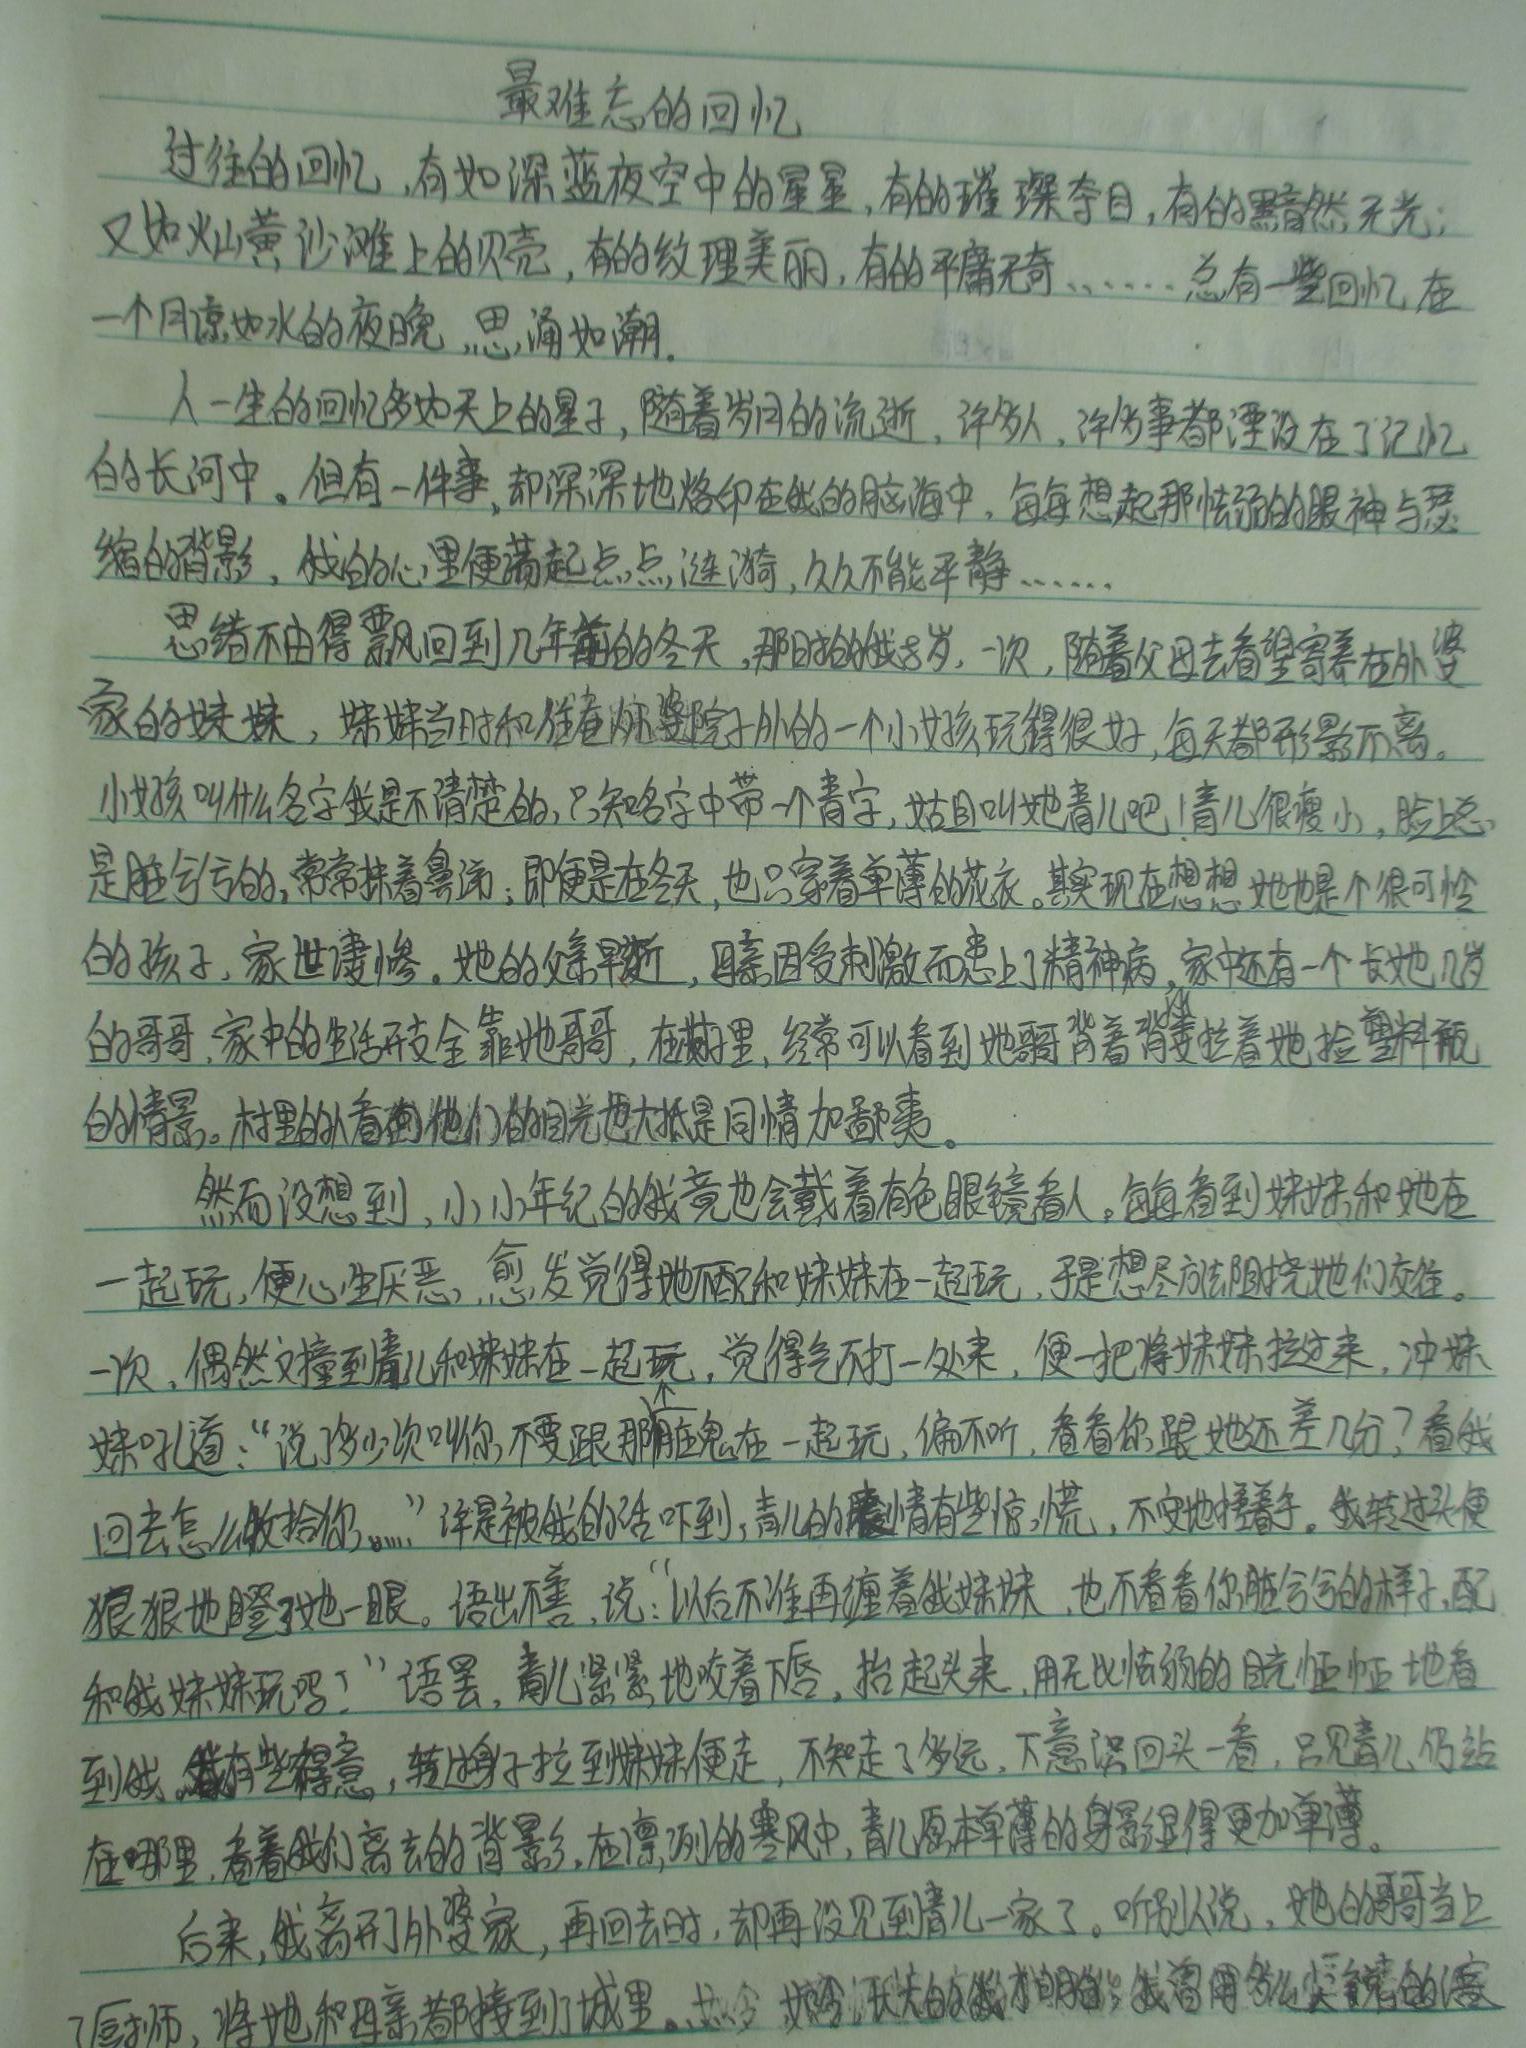 最难忘的回忆
过往的回忆,有如深蓝夜空中的星星,有的璀璨夺目,有的黯然无光;
又如火山黄沙滩上的贝壳,有的纹理美丽,有的平庸无奇......总有一些回忆,在
一个月凉如水的夜晚,思涌如潮.
人一生的回忆多如天上的星子,随着岁月的流逝,许多人,许多事都湮没在了记忆
的长河中。但有一件事,却深深地烙印在我的脑海中,每每想起那怯弱的眼神与瑟
缩的背影,我的心里便荡起点点涟漪,久久不能平静......
思绪不由得飘回到几年前的冬天,那时的我8岁,一次,随着父母去看望寄养在外婆
家的妹妹,妹妹当时和住在外婆院子外的一个小女孩玩得很好,每天都形影不离。
小女孩叫什么名字我是不清楚的,只知名字中带一个青字,姑且叫她青儿吧!青儿很瘦小,脸上总
是脏兮兮的,常常抹着鼻涕;即便是在冬天,也只穿着单薄的花衣。其实现在想想她也是个很可怜
的孩子,家世凄惨。她的父亲早逝,母亲因受刺激而患上了精神病,家中还有一个长她几岁
的哥哥,家中的生活开支全靠她哥哥,在村子里,经常可以看到她哥哥背着背篓拉着她捡塑料瓶
的情景。村里的人看向他们的目光也大抵是同情加鄙夷。
然而没想到,小小年纪的我竟也会戴着有色眼镜看人。每每看到妹妹和她在
一起玩,便心生厌恶,愈发觉得她不配和妹妹在一起玩,于是想尽方法阻挠她们交往。
一次,偶然又撞到青儿和妹妹在一起玩,觉得气不打一处来,便一把将妹妹拉过来,冲妹
妹吼道:“说了多少次叫你不要跟那个脏鬼在一起玩,偏不听,看看你跟她还差几分?看我
回去怎么收拾你......”许是被我的话吓到,青儿的表情有些惊慌,不安地搓着手。我转过头便
狠狠地瞪了她一眼。语出不善,说:“以后不准再缠着我妹妹,也不看看你脏兮兮的样子,配
和我妹妹玩吗!”语罢,青儿紧紧地咬着下唇,抬起头来,用无比怯弱的目光怔怔地看
到我,我有些得意,转过身子拉到妹妹便走,不知走了多远,下意识回头一看,只见青儿仍站
在哪里,看着我们离去的背影,在凛冽的寒风中,青儿原本单薄的身影显得更加单薄。
后来,我离开了外婆家,再回去时,却再没见到青儿一家了。听别人说,她的哥哥当上
了厨师,将她和母亲都接到了城里。